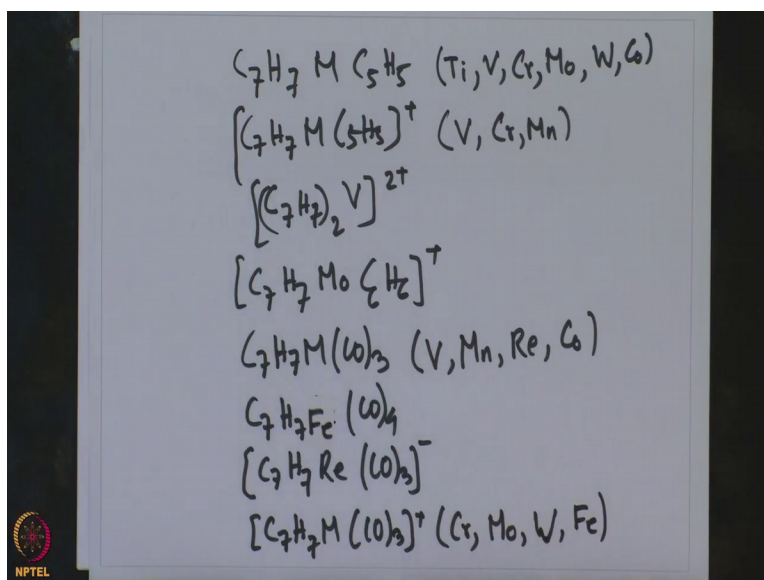 C₇H₇ M C₅H₅ (Ti, V, Cr, Mo, W, Co)
[C₇H₇ M C₅H₅]⁺ (V, Cr, Mn)
[(C₇H₇)₂ V]²⁺
[C₇H₇ Mo C₆H₆]⁺
C₇H₇M(CO)₃ (V, Mn, Re, Co)
C₇H₇Fe (CO)₄
[C₇H₇ Re (CO)₃]⁻
[C₇H₇M (CO)₃]⁺ (Cr, Mo, W, Fe)
NPTEL